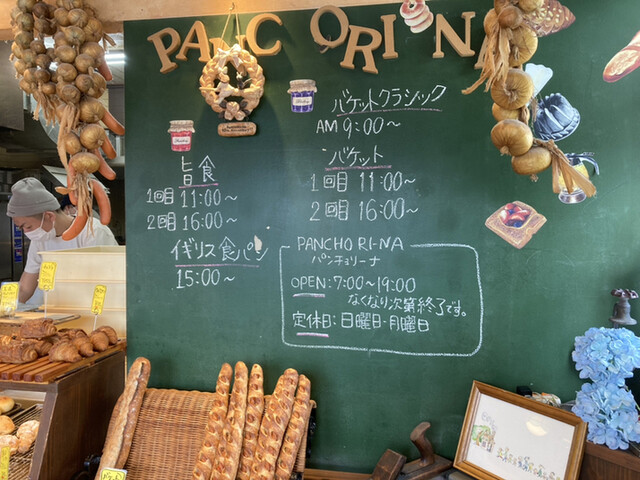 PANCIORINA
バゲットクラシック
AM 9:00～
旨食
1回目 11:00～
2回目 16:00～
バゲット
1回目 11:00～
2回目 16:00～
イギリス食パン
15:00～
PANCHORI-NA
パンチョリーナ
OPEN: 7:00～19:00
なくなり次第終了です。
定休日: 日曜日・月曜日